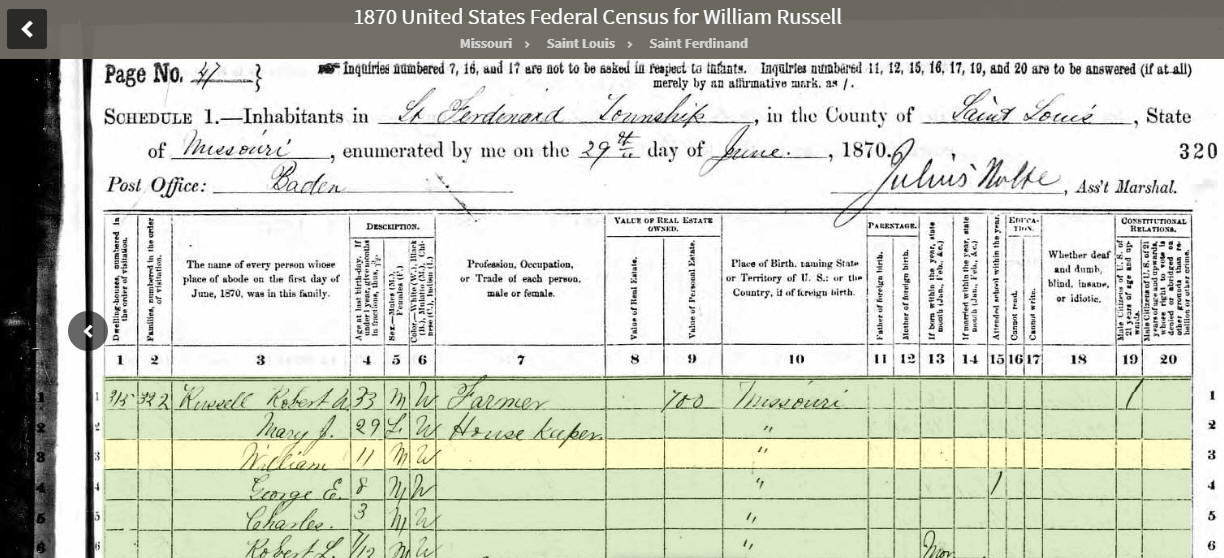 1870 United States Federal Census for William Russell
Missouri › Saint Louis › Saint Ferdinand
Page No. 47 } Inquiries numbered 7, 16, and 17 are not to be asked in respect to infants. Inquiries numbered 11, 12, 15, 16, 17, 19, and 20 are to be answered (if at all)
merely by an affirmative mark, as /.
SCHEDULE 1.—Inhabitants in St Ferdinand Township, in the County of Saint Louis, State
of Missouri, enumerated by me on the 29th day of June., 1870.
320
Post Office: Baden
Julius Nolte, Ass't Marshal.
Dwelling-houses, numbered in the order of visitation.
Families, numbered in the order of visitation.
The name of every person whose place of abode on the first day of June, 1870, was in this family.
DESCRIPTION.
Age at last birth-day. If under 1 year, give months in fractions, thus, 
Sex.—Males (M.), Females (F.)
Color.—White (W.), Black (B.), Mulatto (M.), Chinese (C.), Indian (I.)
Profession, Occupation, or Trade of each person, male or female.
VALUE OF REAL ESTATE OWNED.
Value of Real Estate.
Value of Personal Estate.
Place of Birth, naming State or Territory of U. S.; or the Country, if of foreign birth.
PARENTAGE.
Father of foreign birth.
Mother of foreign birth.
If born within the year, state month (Jan., Feb., &c.)
If married within the year, state month (Jan., Feb., &c.)
Attended school within the year.
EDUCATION.
Cannot read.
Cannot write.
Whether deaf and dumb, blind, insane, or idiotic.
CONSTITUTIONAL RELATIONS.
Male Citizens of U. S. of 21 years of age and upwards.
Male Citizens of U. S. of 21 years of age and upwards, whose right to vote is denied or abridged on other grounds than rebellion or other crime.
1 2 3 4 5 6 7 8 9 10 11 12 13 14 15 16 17 18 19 20
1 1 315 322 Russell Robert A. 33 M W Farmer 700 Missouri 1 1
2 2 Mary J. 29 F. W House Keeper. " 2
3 3 William 11 M W " 3
4 4 George E. 8 M W " 1 4
5 5 Charles. 3 M W " 5
6 6 Robert L. 7/12 M W " Nov 6